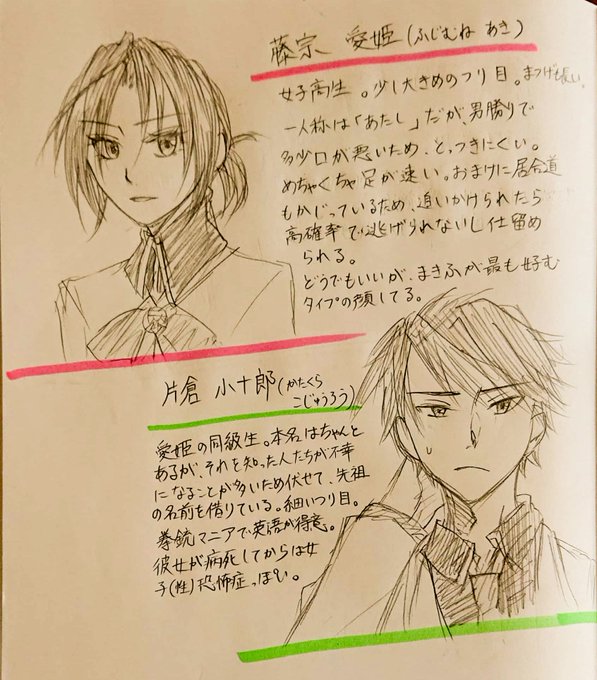 藤宗 愛姫(ふじむね あき)
女子高生。少し大きめのつり目。まつげも長い。
一人称は「あたし」だが、男勝りで
多少口が悪いため、とっつきにくい。
めちゃくちゃ足が速い。おまけに居合道
もかじっているため、追いかけられたら
高確率で逃げられないし仕留め
られる。
どうでもいいが、まきふが最も好む
タイプの顔してる。
片倉 小十郎(かたくら
こじゅうろう)
愛姫の同級生。本名はちゃんと
あるが、それを知った人たちが不幸
になることが多いため伏せて、先祖
の名前を借りている。細いつり目。
拳銃マニアで英語が得意。
彼女が病死してからは女
子(性)恐怖症っぽい。